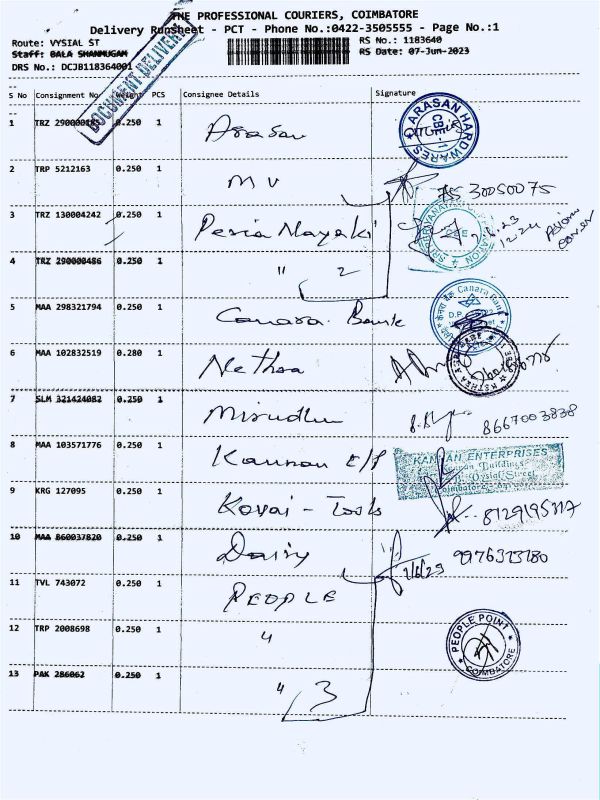 THE PROFESSIONAL COURIERS, COIMBATORE
Delivery Runsheet - PCT - Phone No.:0422-3505555 - Page No.:1
Route: VYSIAL ST
RS No.: 1183640
Staff: BALA SHANMUGAM
RS Date: 07-Jun-2023
DRS No.: DCJB118364001
DOCUMENT DELIVERY
S No Consignment No Weight PCS Consignee Details Signature
1 TRZ 0.250 1 Arasan
ARASAN HARDWARES
CBE-1
2 TRP 5212163 0.250 1 MV
30050075
3 TRZ 130004242 0.250 1 Peria Nayaki
12:24
4 TRZ 290000486 0.250 1 " 2
5 MAA 298321794 0.250 1 Canara Bank
Canara Bank
6 MAA 102832519 0.280 1 Nethra
7 SLM 321424082 0.250 1 Mirudhu
8667003838
8 MAA 103571776 0.250 1 Kannan E/P
KANNAN ENTERPRISES
Buildings
Vysial Street
Coimbatore
9 KRG 127095 0.250 1 Kovai - Tools
8129195117
10 MAA 860037820 0.250 1 Dairy
9976323780
11 TVL 743072 0.250 1 PEOPLE
12 TRP 2008698 0.250 1 "
PEOPLE POINT
COIMBATORE
13 PAK 286062 0.250 1 " 3